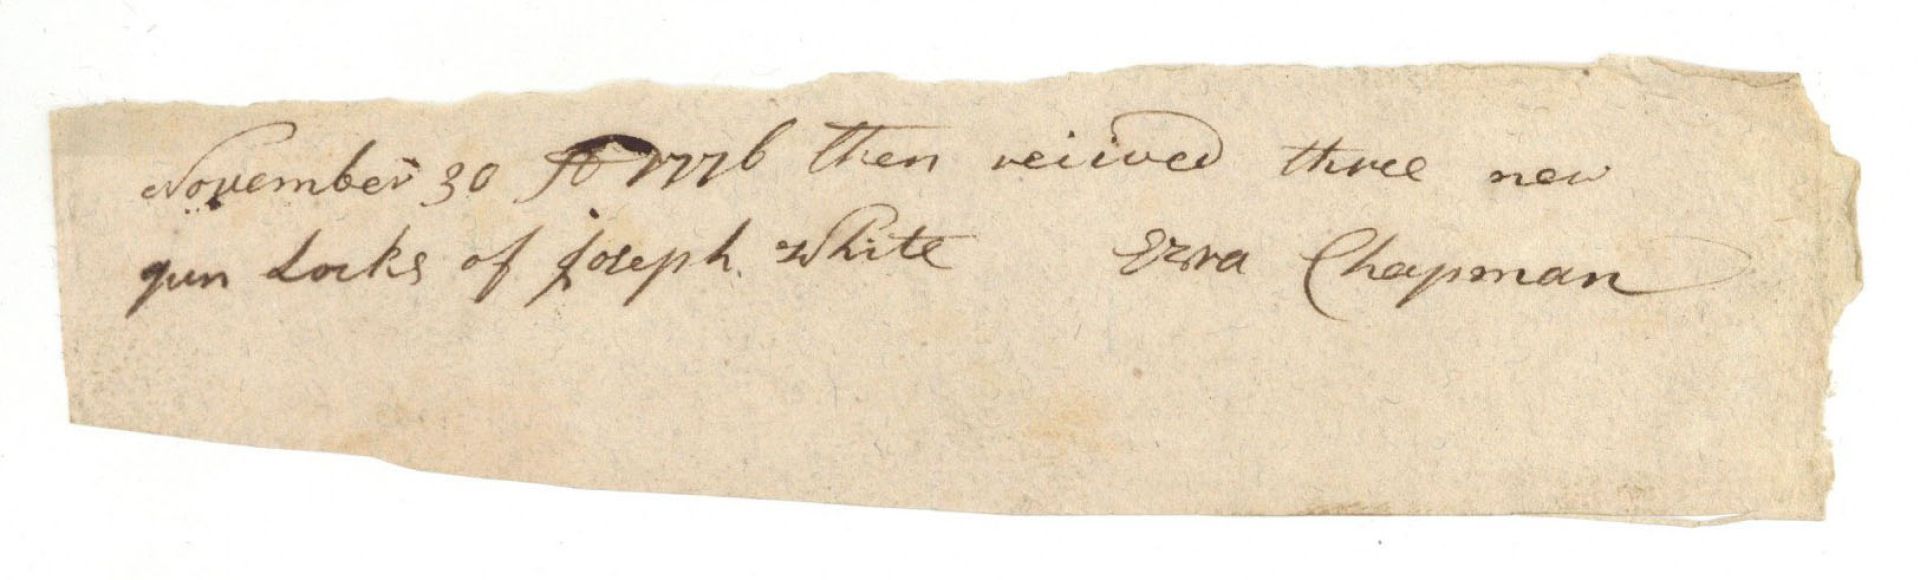 November 30 AD 1776 then reiived three new
gun Locks of Joseph White Ezra Chapman